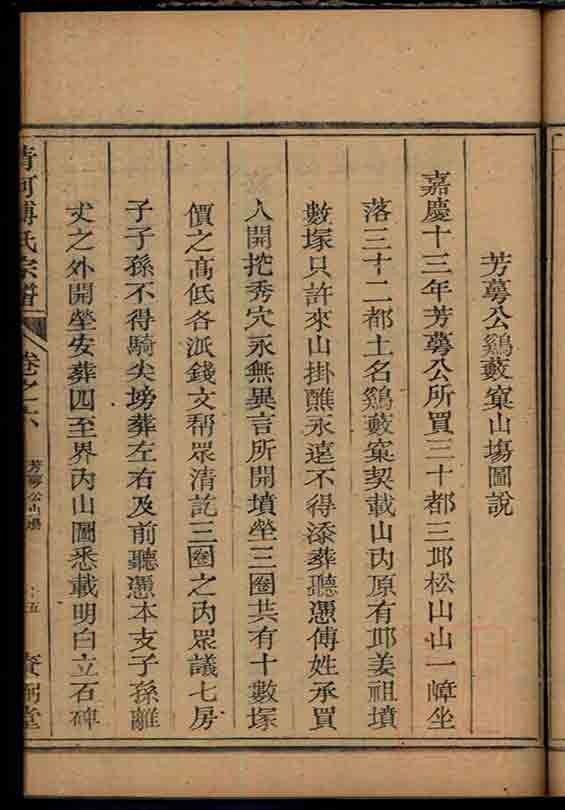 芳蕚公鷄藪窠山塲圖說
嘉慶十三年芳蕚公所買三十都三邱松山山一嶂坐
落三十二都土名鷄藪窠契載山內原有邱姜祖墳
數塚只許來山掛醮永遠不得添葬聽憑傅姓承買
人開挖秀穴永無異言所開墳塋三圈共有十數塚
價之高低各派錢文帮眾清訖三圈之內眾議七房
子子孫不得騎尖塝葬左右及前聽憑本支子孫離
丈之外開塋安葬四至界內山圖悉載明白立石碑
清河傅氏宗譜 卷之六 芳蕚公山塲 五 堂